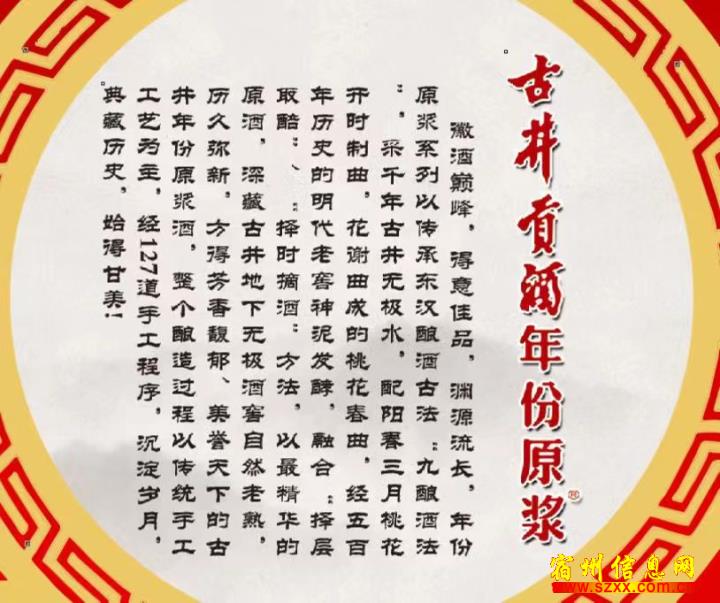 古井贡酒年份原浆®
徽酒巅峰，得意佳品，渊源流长，年份
原浆系列以传承东汉酿酒古法“九酿酒法
”，采千年古井无极水，配阳春三月桃花
开时制曲，花谢曲成的桃花春曲，经五百
年历史的明代老窖神泥发酵，融合“择层
取醅”、“择时摘酒”方法，以最精华的
原酒，深藏古井地下无极酒窖自然老熟，
历久弥新，方得芳香馥郁、美誉天下的古
井年份原浆酒，整个酿造过程以传统手工
工艺为主，经127道手工程序，沉淀岁月，
典藏历史，始得甘美！
宿州信息网
www.szxx.com.cn